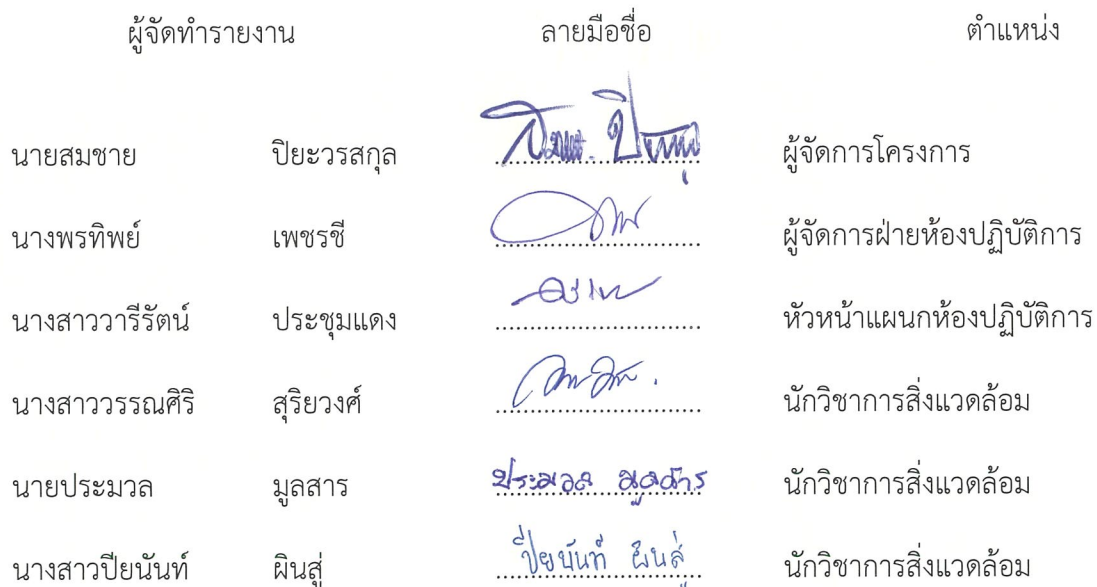 ผู้จัดทำรายงาน ลายมือชื่อ ตำแหน่ง
นายสมชาย ปิยะวรสกุล ผู้จัดการโครงการ
นางพรทิพย์ เพชรชี ผู้จัดการฝ่ายห้องปฏิบัติการ
นางสาววารีรัตน์ ประชุมแดง หัวหน้าแผนกห้องปฏิบัติการ
นางสาววรรณศิริ สุริยวงศ์ นักวิชาการสิ่งแวดล้อม
นายประมวล มูลสาร ประมวล มูลสาร นักวิชาการสิ่งแวดล้อม
นางสาวปิยนันท์ ผินสู่ ปิยนันท์ ผินสู่ นักวิชาการสิ่งแวดล้อม